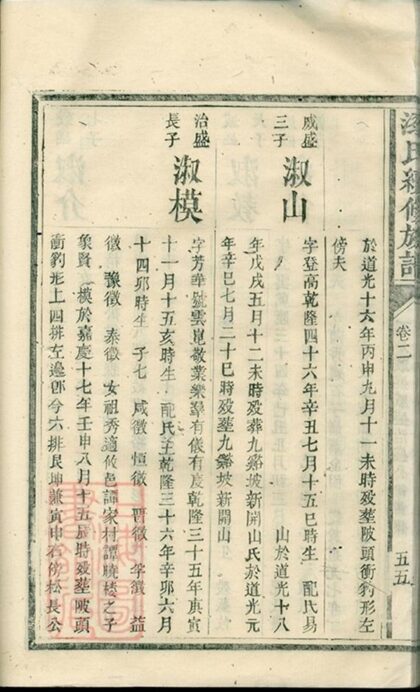 氏續修族譜
卷二
五五
於道光十六年丙申九月十一未時歿塟陂頭衝豹形左
傍夫
咸盛
三子
淑山
字登高乾隆四十六年辛丑七月十五巳時生 配氏易
山於道光十八
年戊戌五月十二未時歿葬九谿坡新開山氏於道光元
年辛巳七月二十巳時歿塟九谿坡新開山
治盛
長子
淑模
字芳華號雲崑敬業樂羣有儀有度乾隆三十五年庚寅
十一月十五亥時生 配氏王乾隆三十六年辛卯六月
十四卯時生 子七 咸徵 恒徵 晋徵 孚徵 益
徵 豫徵 泰徵 女祖秀適攸邑譚家村譚曉樓之子
象賢 模於嘉慶十七年壬申八月十五辰時歿塟陂頭
衝豹形上四排左邊卽今六排艮坤兼寅申石傍松長公